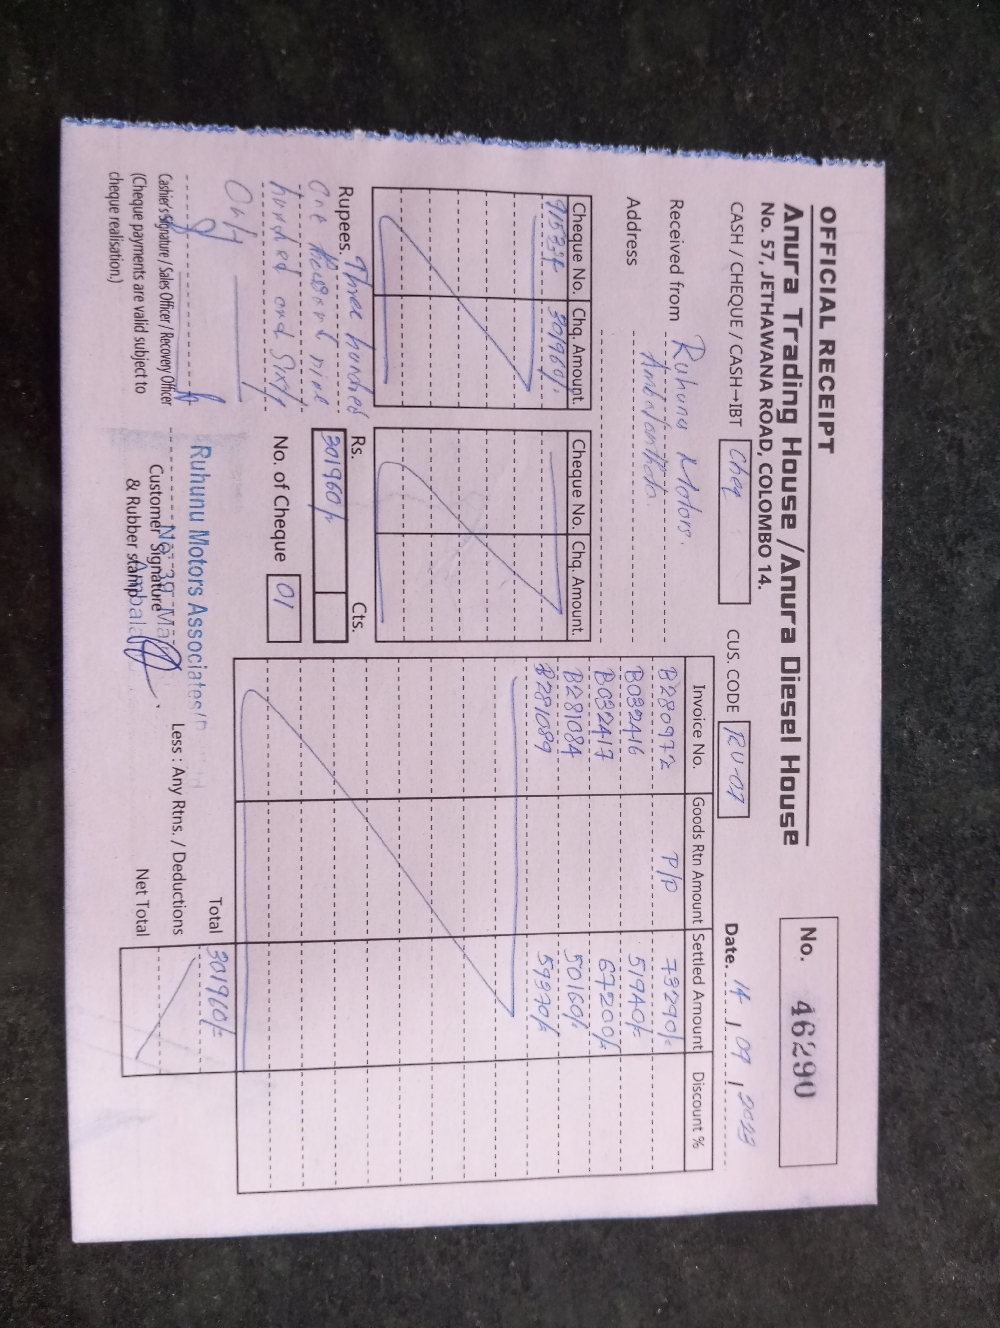 OFFICIAL RECEIPT
Anura Trading House / Anura Diesel House
No. 57, JETHAWANA ROAD, COLOMBO 14.
No. 46290
CASH / CHEQUE / CASH→IBT Cheq
CUS. CODE RU-07
Date. 14 / 09 / 2023
Received from Ruhunu Motors.
Address Ambalanthota.
Cheque No. Chq. Amount. Cheque No. Chq. Amount.
301960/-
Invoice No. Goods Rtn Amount Settled Amount Discount %
B280972 P/P 73290/-
B032416 51940/-
B032417 67200/-
B281084 50160/-
B281089 59370/-
Rupees. Three hundred
One thousand nine
hundred and Sixty
Only
Rs. Cts.
301960/-
No. of Cheque 01
Total 301960/-
Less : Any Rtns. / Deductions
Net Total
Cashier's Signature / Sales Officer / Recovery Officer
(Cheque payments are valid subject to
cheque realisation.)
Ruhunu Motors Associates
No: 39, Ma
Ambala
Customer Signature
& Rubber stamp